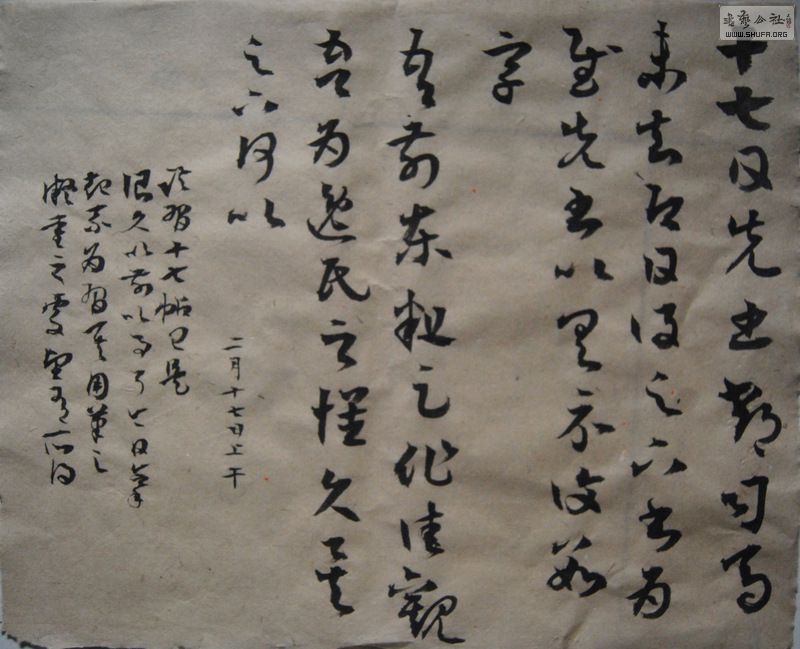 十七日先书郗司马
未去即日得足下书为
慰先书以具示复数
字
吾前东粗足作佳观
吾为逸民之怀久矣
足下何以
二月十七日上午
临习十七帖已是
很久以前的事了今日拿
起来为习其用笔之
凝重之处望有所得
书艺公社
WWW.SHUFA.ORG